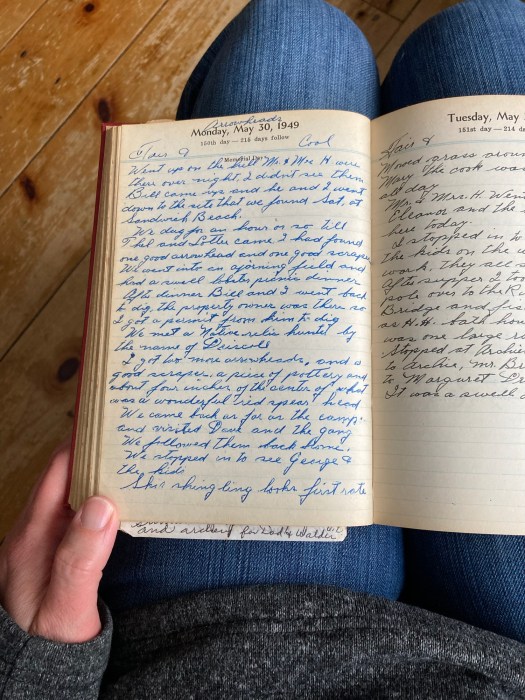 Arrowheads
Monday, May 30, 1949
150th day—215 days follow
Fair & Cool
Memorial Day
Went up on the hill Mr. & Mrs H were
there over night I didn't see them
Bill came up and he and I went
down to the site that we found Sat. at
Sandwich Beach.
We dug for an hour or so till
Thel and Lotter came I had found
one good arrowhead and one good scraper
We went into an ajorning field and
had a swell lobster picnic dinner
After dinner Bill and I went back
to dig, the property owner was there so
I got a permit from him to dig
We met a Native relic hunter by
the name of Driscoll
I got two more arrowheads, and a
good scraper. a piece of pottery and
about four inches of the center of what
was a wonderful red spear head
We came back as far as the camp
and visited Dave and the gang
We followed them back home.
We stopped in to see George &
the kids
His shingling looks first rate
and archery for Dad & Walder
Tuesday, May
151st day—214 d
Fair &
Mowed grass aroun
Mary the cook was
all day
Mr. & Mrs. H. Wein
Eleanor and the
here today.
I stopped in to
the kids on the w
work, they are
After supper I to
pole over to the R.
Bridge and fis
as H.H. bath hou
was one large r
Stopped at Archie
to Archie, Mr. Br
to Margaret
It was a swell d